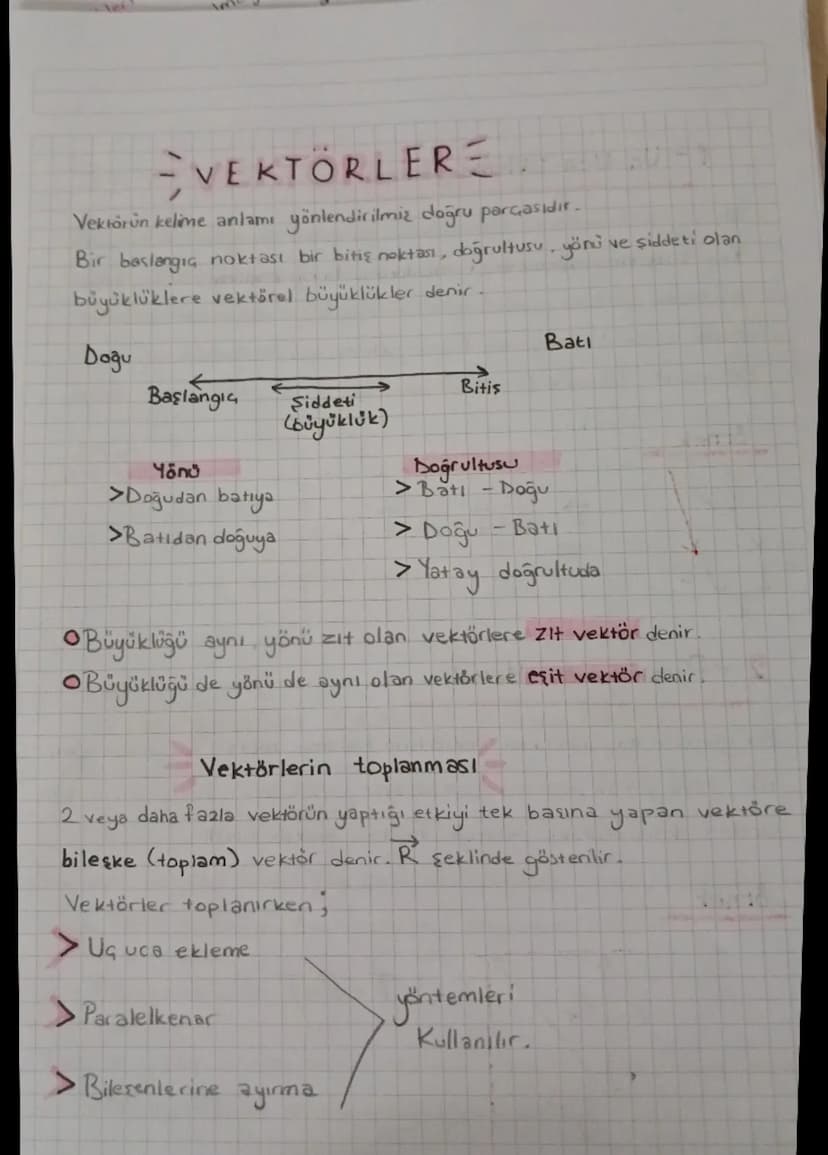 VEKTÖRLER
Vektörün kelime anlamı yönlendirilmiş doğru parçasıdır.
Bir başlangıç noktası bir bitiş noktası, doğrultusu, yönü ve şiddeti olan
büyüklüklere vektörel büyüklükler denir.
Doğu
Batı
Başlangıç
Şiddeti
(büyüklük)
Bitiş
Yönü
>Doğudan batıya
>Batıdan doğuya
Doğrultusu
> Batı - Doğu
> Doğu - Batı
> Yatay doğrultuda
Büyüklüğü aynı yönü zıt olan vektörlere zıt vektör denir.
Büyüklüğü de yönü de aynı olan vektörlere eşit vektör denir.
Vektörlerin toplanması
2 veya daha fazla vektörün yaptığı etkiyi tek başına yapan vektöre
bileşke (toplam) vektör denir. R şeklinde gösterilir.
Vektörler toplanırken;
> Uç uca ekleme
> Paralelkenar
> Bileşenlerine ayırma
yöntemleri
kullanılır.